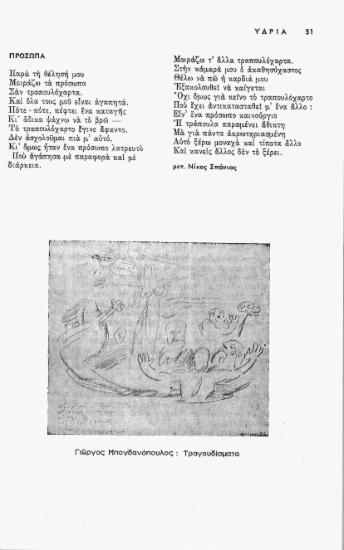 ΥΔΡΙΑ 51
ΠΡΟΣΩΠΑ
Παρὰ τὴ θέλησή μου
Μοιράζω τὰ πρόσωπα
Σὰν τραπουλόχαρτα.
Καὶ ὅλα τους μοῦ εἶναι ἀγαπητά.
Πότε - πότε, πέφτει ἕνα καταγῆς
Κι' ἄδικα ψάχνω νὰ τὸ βρῶ —
Τὸ τραπουλόχαρτο ἔγινε ἄφαντο.
Δὲν ἀσχολοῦμαι πιὰ μ' αὐτό.
Κι' ὅμως ἦταν ἕνα πρόσωπο λατρευτὸ
Ποὺ ἀγάπησα μὲ παραφορὰ καὶ μὲ
διάρκεια.
Μοιράζω τ' ἄλλα τραπουλόχαρτα.
Στὴν κάμαρά μου ὁ ἀκαθησύχαστος
Θέλω νὰ πῶ ἡ καρδιά μου
Ἐξακολουθεῖ νὰ καίγεται
Ὄχι ὅμως γιὰ κεῖνο τὸ τραπουλόχαρτο
Ποὺ ἔχει ἀντικατασταθεῖ μ' ἕνα ἄλλο :
Εἶν' ἕνα πρόσωπο καινούργιο
Ἡ τράπουλα παραμένει ἄθικτη
Μὰ γιὰ πάντα ἀκρωτηριασμένη
Αὐτὸ ξέρω μοναχὰ καὶ τίποτα ἄλλο
Καὶ κανεὶς ἄλλος δὲν τὸ ξέρει.
μετ. Νίκος Σπάνιας
Γιῶργος Μπογδανόπουλος : Τραγουδίσματα